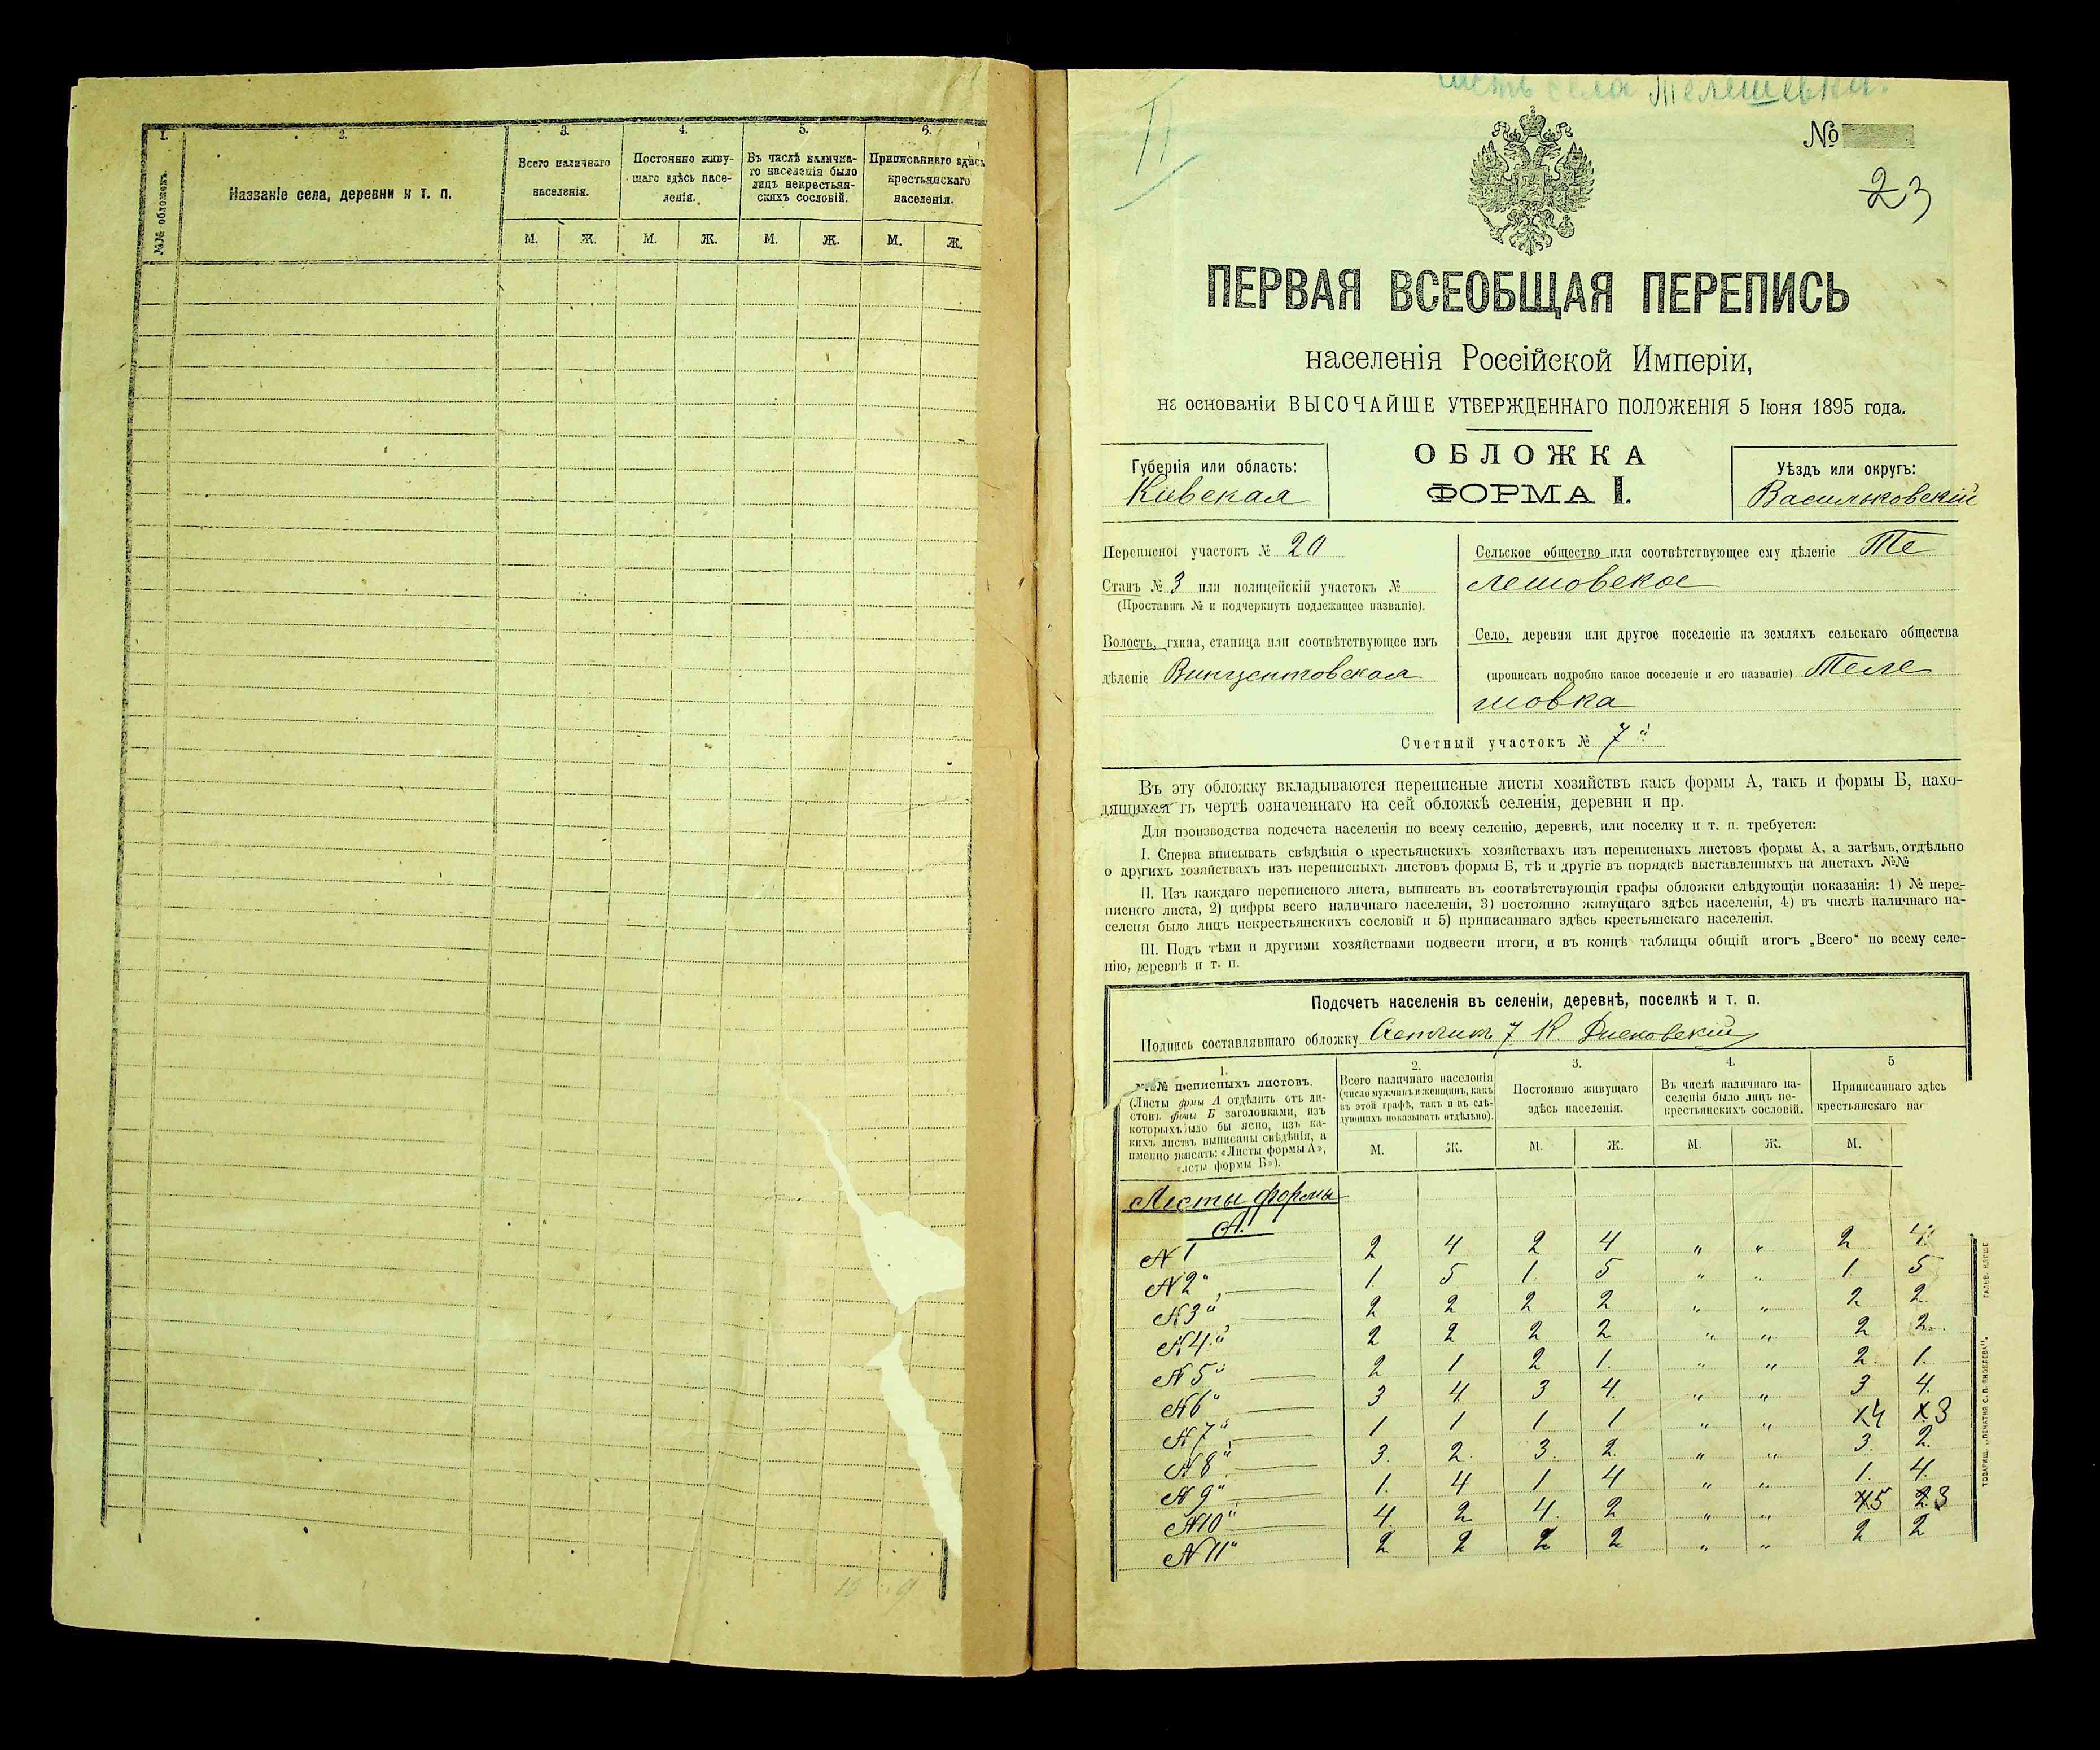 1.
2.
3.
4.
5.
6.
№№ обложекъ.
Названіе села, деревни и т. п.
Всего наличнаго
населенія.
Постоянно живу-
щаго здѣсь насе-
ленія.
Въ числѣ налична-
го населенія было
лицъ некрестьян-
скихъ сословій.
Приписаннаго здѣсь
крестьянскаго
населенія.
М. Ж. М. Ж. М. Ж. М. Ж.
II
часть села Телешевка.
№
23
ПЕРВАЯ ВСЕОБЩАЯ ПЕРЕПИСЬ
населенія Россійской Имперіи,
на основаніи ВЫСОЧАЙШЕ УТВЕРЖДЕННАГО ПОЛОЖЕНІЯ 5 Іюня 1895 года.
Губернія или область:
Кіевская
ОБЛОЖКА
ФОРМА I.
Уѣздъ или округъ:
Васильковскій
Переписной участокъ № 20
Станъ № 3 или полицейскій участокъ №
(Проставить № и подчеркнуть подлежащее названіе).
Волость, гмина, станица или соотвѣтствующее имъ
дѣленіе Винцентовская
Сельское общество или соотвѣтствующее ему дѣленіе Те
лешовское
Село, деревня или другое поселеніе на земляхъ сельскаго общества
(прописать подробно какое поселеніе и его названіе) Теле
шовка
Счетный участокъ № 7й
Въ эту обложку вкладываются переписные листы хозяйствъ какъ формы А, такъ и формы Б, нахо-
дящихся въ чертѣ означеннаго на сей обложкѣ селенія, деревни и пр.
Для производства подсчета населенія по всему селенію, деревнѣ, или поселку и т. п. требуется:
I. Сперва вписывать свѣдѣнія о крестьянскихъ хозяйствахъ изъ переписныхъ листовъ формы А, а затѣмъ, отдѣльно
о другихъ хозяйствахъ изъ переписныхъ листовъ формы Б, тѣ и другіе въ порядкѣ выставленныхъ на листахъ №№
II. Изъ каждаго переписного листа, выписать въ соотвѣтствующія графы обложки слѣдующія показанія: 1) № пере-
писного листа, 2) цифры всего наличнаго населенія, 3) постоянно живущаго здѣсь населенія, 4) въ числѣ наличнаго на-
селенія было лицъ некрестьянскихъ сословій и 5) приписаннаго здѣсь крестьянскаго населенія.
III. Подъ тѣми и другими хозяйствами подвести итоги, и въ концѣ таблицы общій итогъ „Всего“ по всему селе-
нію, деревнѣ и т. п.
Подсчетъ населенія въ селеніи, деревнѣ, поселкѣ и т. п.
Подпись составлявшаго обложку Счетчикъ 7 К.
1.
№№ переписныхъ листовъ.
(Листы формы А отдѣлить отъ ли-
стовъ формы Б заголовками, изъ
которыхъ было бы ясно, изъ ка-
кихъ листовъ выписаны свѣдѣнія, а
именно писать: «Листы формы А»,
«листы формы Б»).
2.
Всего наличнаго населенія
(число мужчинъ и женщинъ, какъ
въ этой графѣ, такъ и въ слѣ-
дующихъ показывать отдѣльно).
3.
Постоянно живущаго
здѣсь населенія.
4.
Въ числѣ наличнаго на-
селенія было лицъ не-
крестьянскихъ сословій.
5
Приписаннаго здѣсь
крестьянскаго нас
М. Ж. М. Ж. М. Ж. М.
Листы формы
А.
N 1 2 4 2 4 " " 2 4
N 2" 1. 5 1. 5 " " 1. 5
N 3й 2 2 2 2 " " 2 2
N 4й 2 2 2 2 " " 2 2
N 5й 2 1 2 1. " " 2. 1.
N 6" 3 4 3 4 " " 3 4.
N 7й 1 1 1 1 " " 14 13
N 8й 3. 2. 3. 2. " " 3. 2.
N 9" 1. 4 1 4 " " 1. 4.
N 10" 4. 2 4. 2 " " 45 23
N 11" 2 2 2 2 " " 2 2
ТОВАРИЩ. „ПЕЧАТНЯ С. П. ЯКОВЛЕВА“.